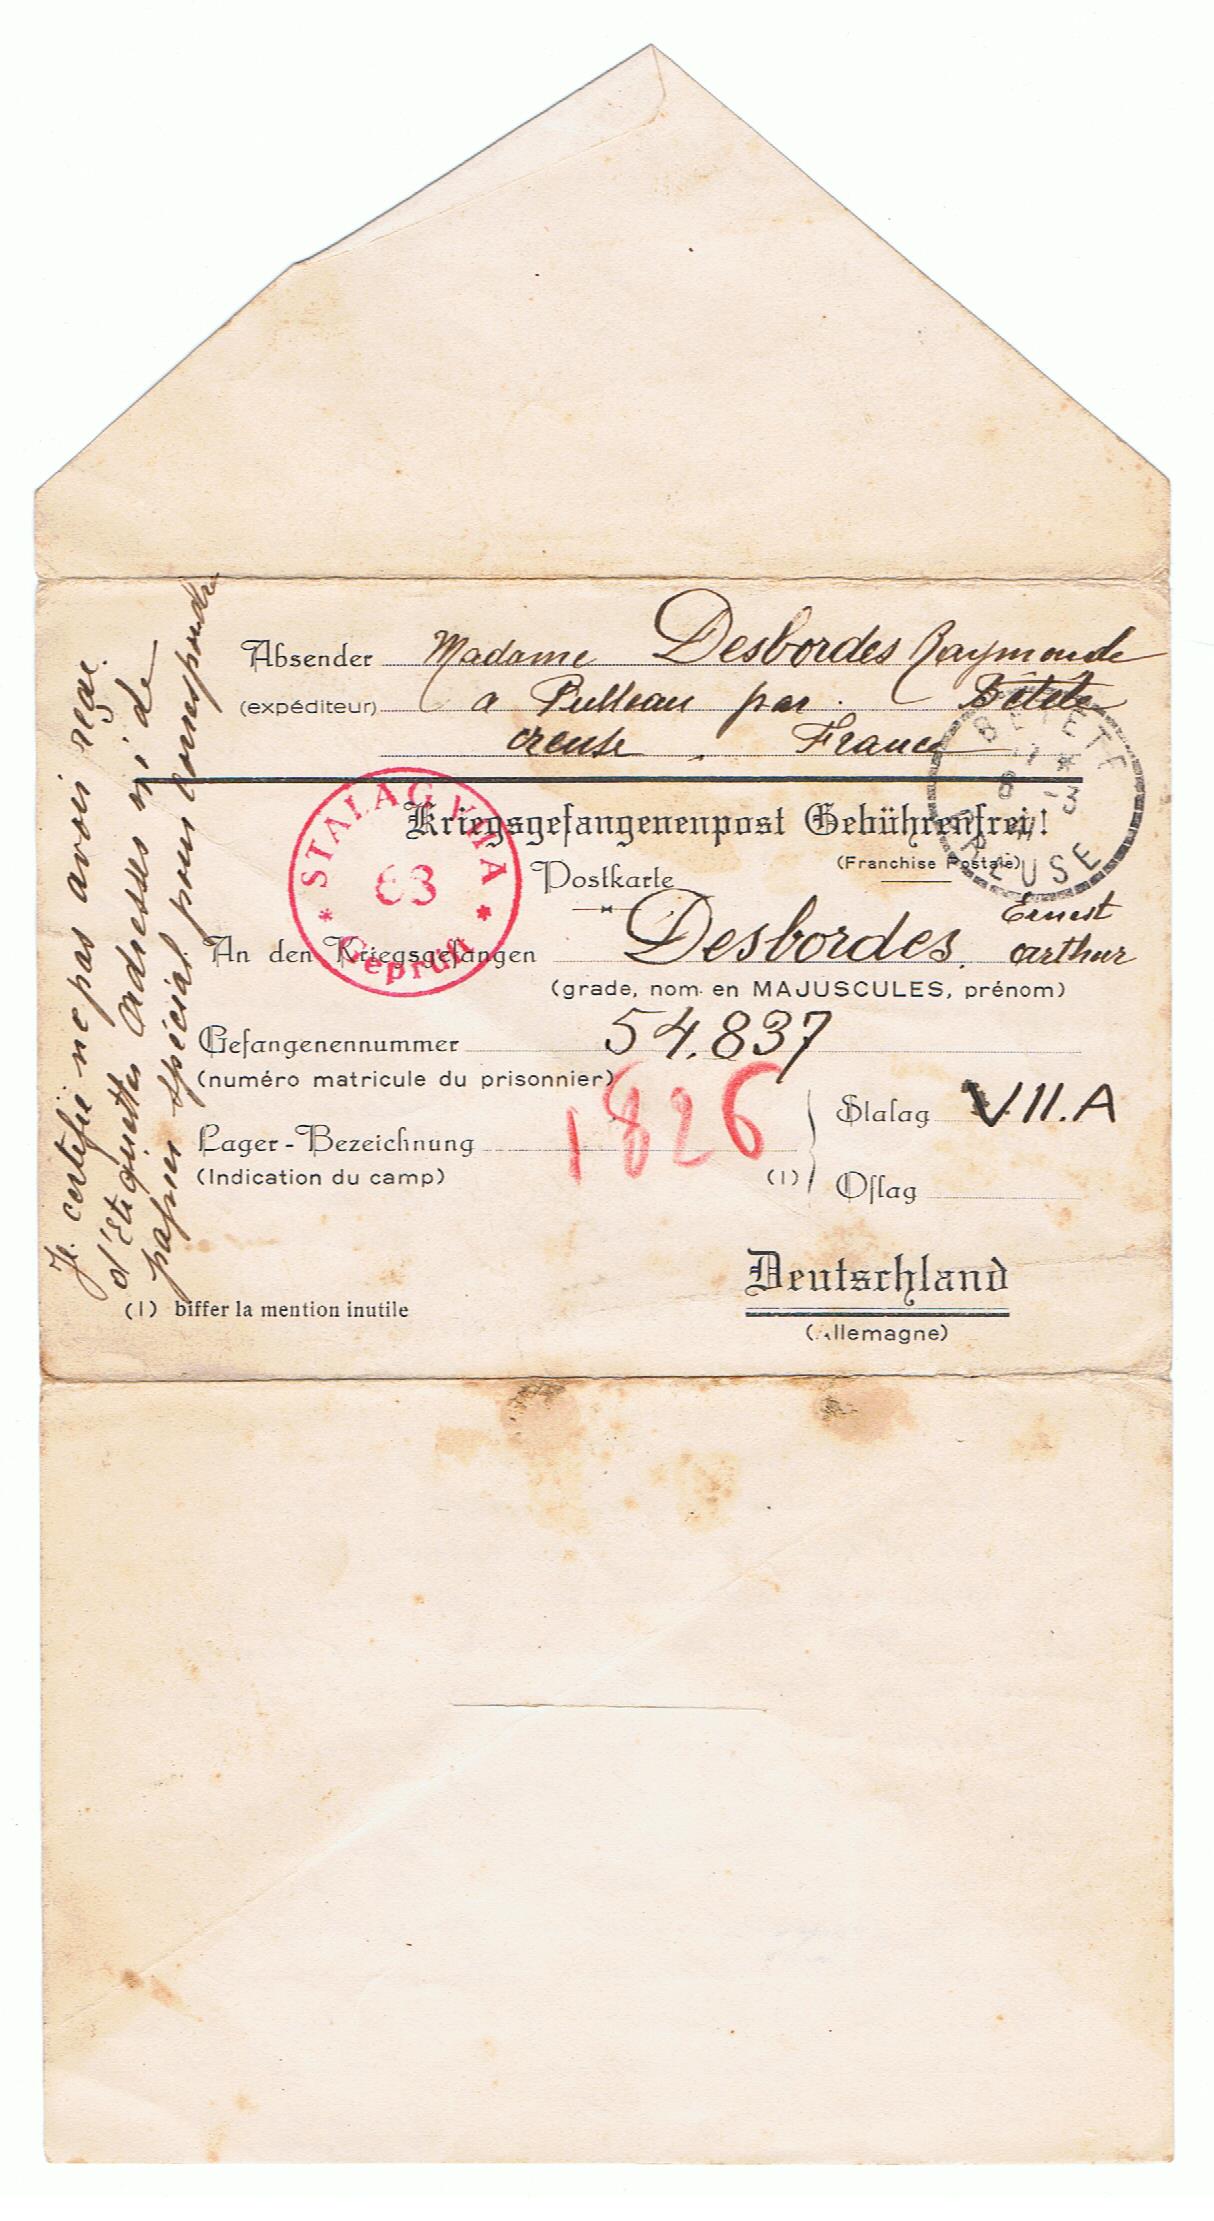 Absender Madame Desbordes Raymonde
(expéditeur) a Pulleau par Bétête
creuse, France
Kriegsgefangenenpost Gebührenfrei!
(Franchise Postale)
Postkarte
An den Kriegsgefangen Desbordes. Ernest
arthur
(grade, nom en MAJUSCULES, prénom)
Gefangenennummer 54.837
(numéro matricule du prisonnier)
1826
Lager-Bezeichnung
(Indication du camp)
(1)
Stalag VII.A
Oflag
Deutschland
(Allemagne)
(1) biffer la mention inutile
Je certifie ne pas avoir reçu
d'étiquettes adresses ni de
papier spécial pour correspondre
STALAG VII A
63
Geprüft
BETETE
CREUSE